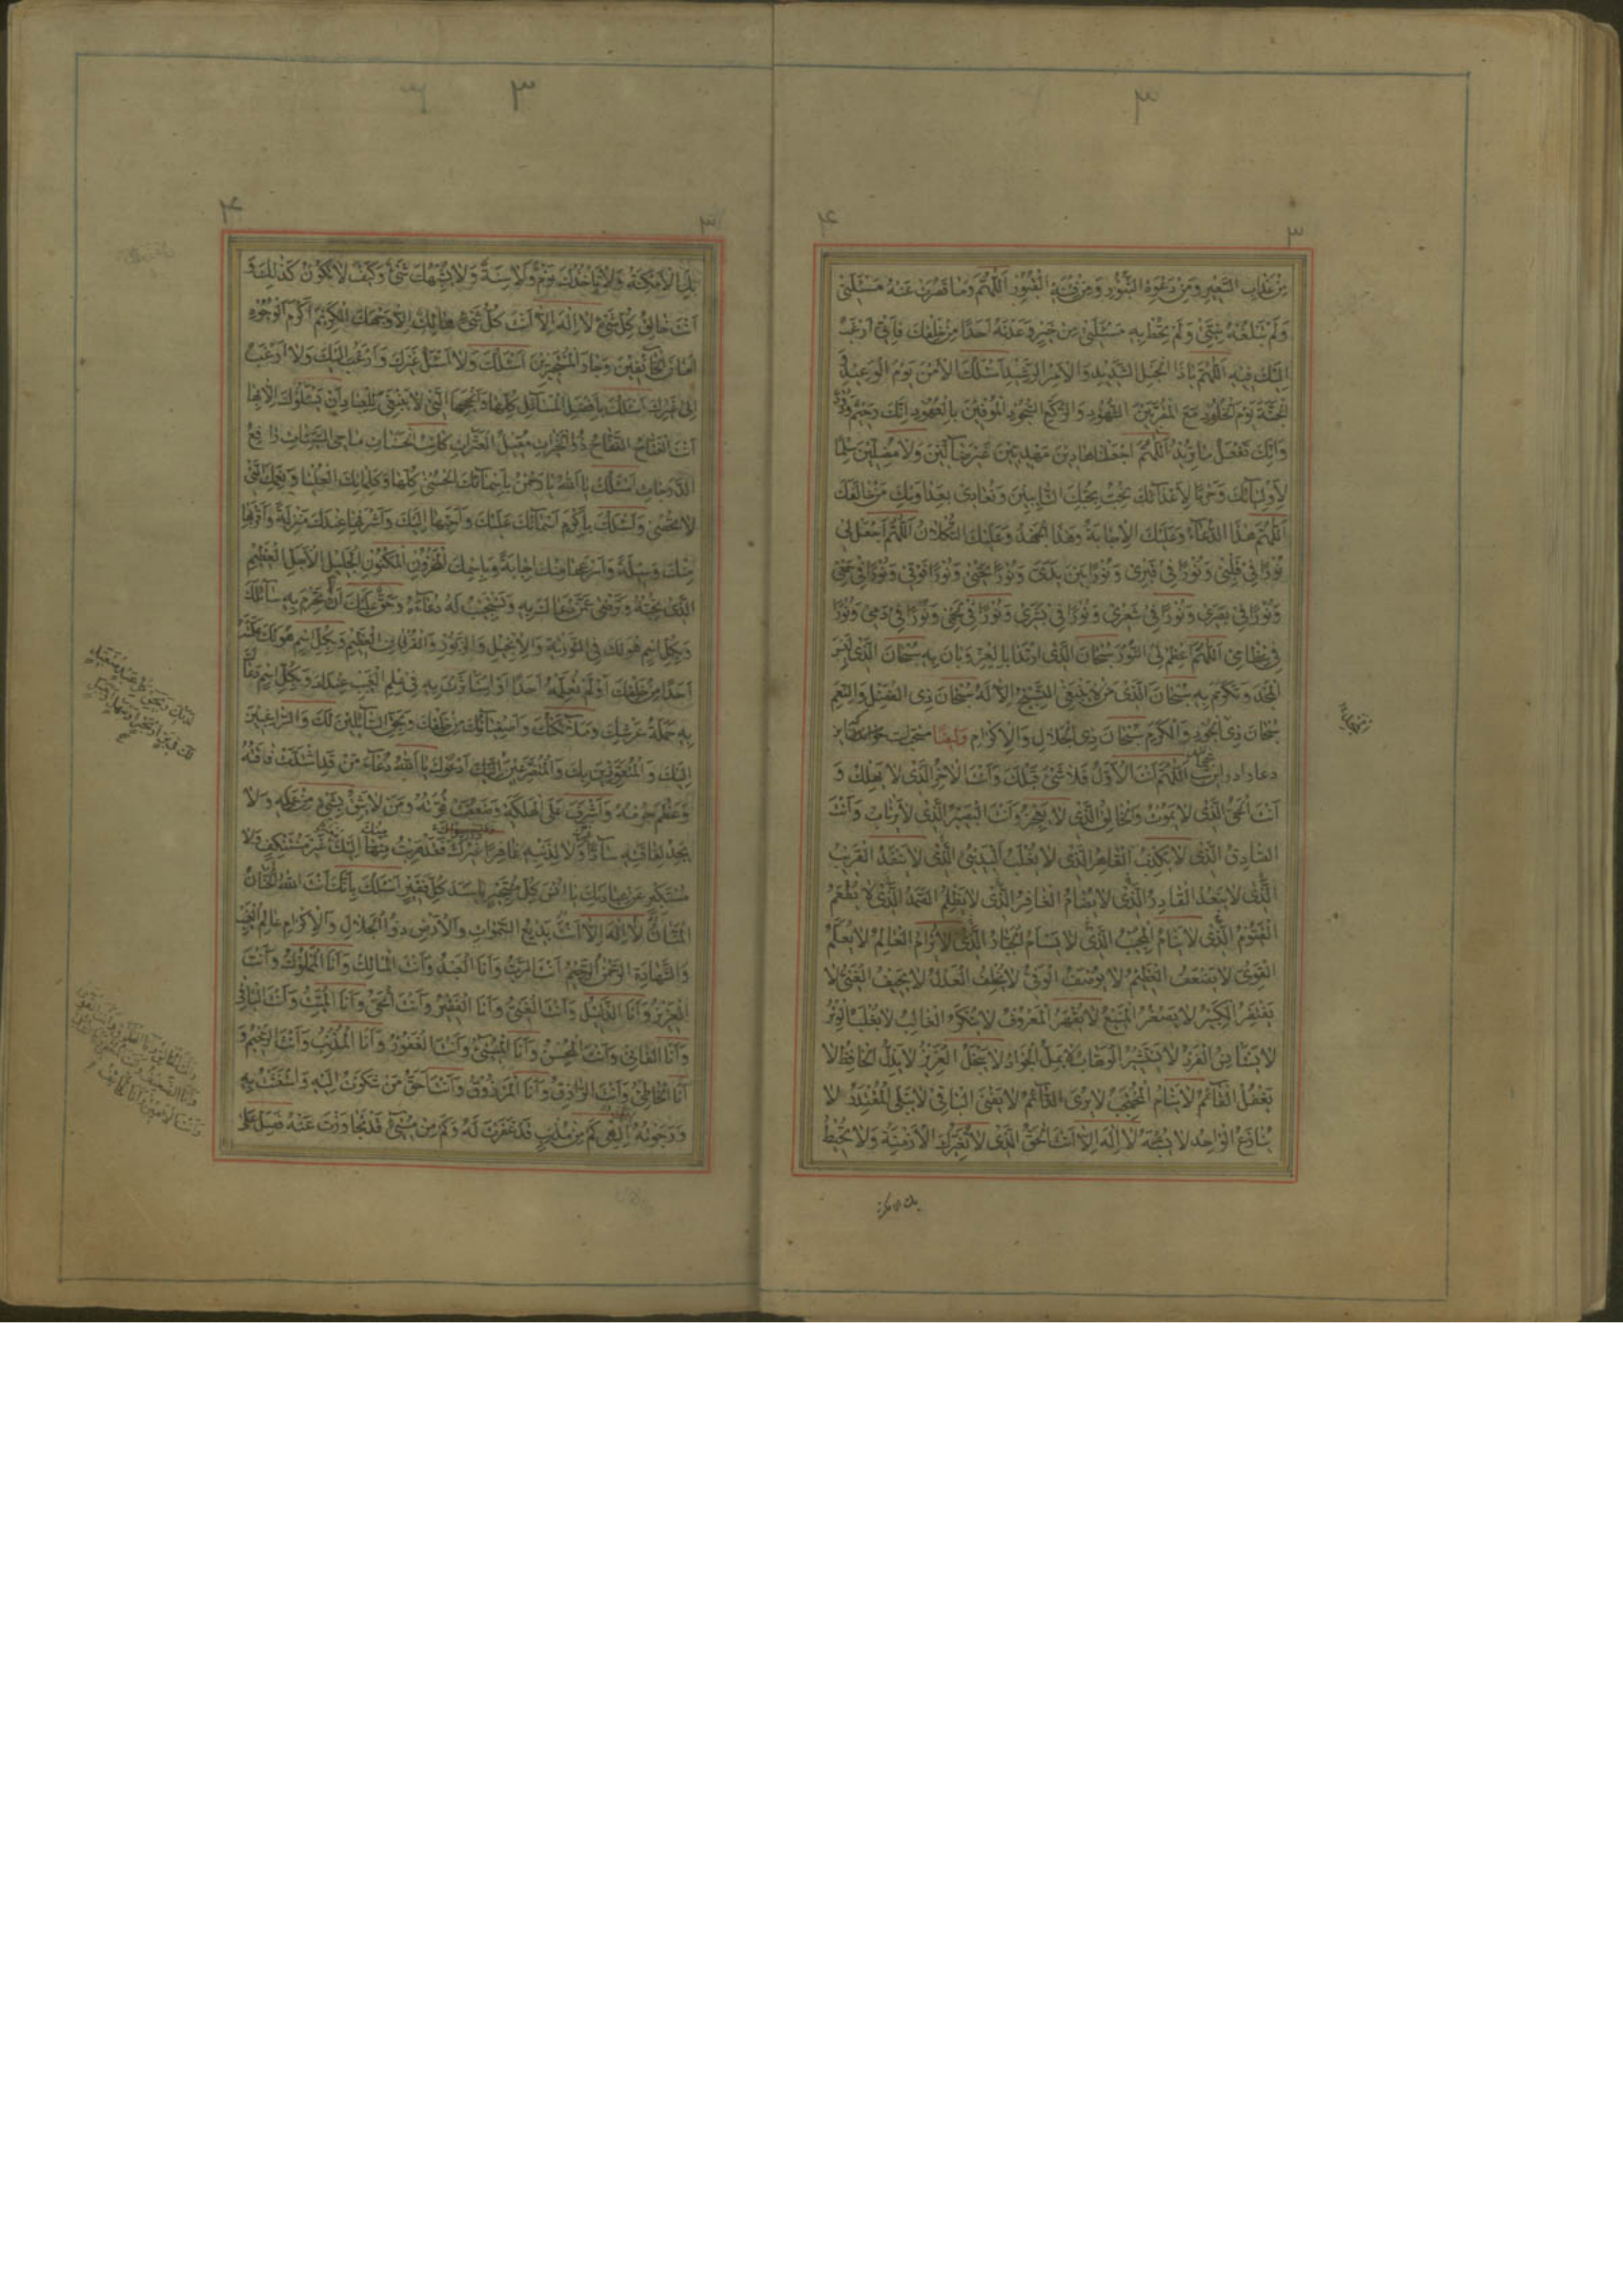 مِنْ عَذابِ السَّعيرِ وَمِنْ دَعْوَةِ الثُّبُورِ وَمِنْ فِتْنَةِ الْقُبُورِ اَللّهُمَّ وَما قَصُرَتْ عَنْهُ مَسْئَلَتى
وَلَمْ تَبْلُغْهُ نِيَّتى وَلَمْ تُحِطْ بِهِ مَسْئَلَتى مِنْ خَيْرٍ وَعَدْتَهُ اَحَدًا مِنْ خَلْقِكَ فَاِنّى اَرْغَبُ
اِلَيْكَ فيهِ اَللّهُمَّ يا ذَا الْحَبْلِ الشَّديدِ وَالْاَمْرِ الرَّشيدِ اَسْئَلُكَ الْاَمْنَ يَوْمَ الْوَعيدِ وَ
الْجَنَّةَ يَوْمَ الْخُلُودِ مَعَ الْمُقَرَّبينَ الشُّهُودِ وَالرُّكَّعِ السُّجُودِ الْمُوفينَ بِالْعُهُودِ اِنَّكَ رَحيمٌ وَدُودٌ
وَاِنَّكَ تَفْعَلُ ما تُريدُ اَللّهُمَّ اجْعَلْنا هادينَ مَهْدِيّينَ غَيْرَ ضآلّينَ وَلا مُضِلّينَ سِلْمًا
لِاَوْلِيآئِكَ وَحَرْبًا لِاَعْدآئِكَ نُحِبُّ بِحُبِّكَ التّآئِبينَ وَنُعادى بِعَداوَتِكَ مَنْ خالَفَكَ
اَللّهُمَّ هذَا الدُّعآءُ وَعَلَيْكَ الْاِجابَةُ وَهذَا الْجَهْدُ وَعَلَيْكَ التُّكْلانُ اَللّهُمَّ اجْعَلْ لى
نُورًا فى قَلْبى وَنُورًا فى قَبْرى وَنُورًا بَيْنَ يَدَىَّ وَنُورًا تَحْتى وَنُورًا فَوْقى وَنُورًا فى سَمْعى
وَنُورًا فى بَصَرى وَنُورًا فى شَعْرى وَنُورًا فى بَشَرى وَنُورًا فى لَحْمى وَنُورًا فى دَمى وَنُورًا
فى عِظامى اَللّهُمَّ اَعْظِمْ لِىَ النُّورَ سُبْحانَ الَّذِى ارْتَدا بِالْعِزِّ وَبانَ بِهِ سُبْحانَ الَّذى لَبِسَ
الْمَجْدَ وَتَكَرَّمَ بِهِ سُبْحانَ الَّذى مَنْ لا يَنْبَغِى التَّسْبيحُ اِلّا لَهُ سُبْحانَ ذِى الْفَضْلِ وَالنِّعَمِ
سُبْحانَ ذِى الْجُودِ وَالْكَرَمِ سُبْحانَ ذِى الْجَلالِ وَالْاِكْرامِ وَايضًا مستجاب
اَللّهُمَّ اَنْتَ الْاَوَّلُ فَلا شَىْءَ قَبْلَكَ وَاَنْتَ الْاخِرُ الَّذى لا يَهْلِكُ وَ
اَنْتَ الْحَىُّ الَّذى لا يَمُوتُ وَالْخالِقُ الَّذى لا يَعْجِزُ وَاَنْتَ الْبَصيرُ الَّذى لا يَرْتابُ وَاَنْتَ
الصّادِقُ الَّذى لا يَكْذِبُ الْقاهِرُ الَّذى لا يُغْلَبُ الْبَدِىءُ الَّذى لا يَنْفَدُ الْقَريبُ
الَّذى لا يَبْعُدُ الْقادِرُ الَّذى لا يُضامُ الْغافِرُ الَّذى لا يَظْلِمُ الصَّمَدُ الَّذى لا يُطْعَمُ
الْقَيُّومُ الَّذى لا يَنامُ الْمُجيبُ الَّذى لا يَسْاَمُ الْجَبّارُ الَّذى لا يُرامُ الْعالِمُ لا يُعَلَّمُ
الْقَوِىُّ لا يَضْعُفُ الْعَظيمُ لا يُوصَفُ الْوَفِىُّ لا يُخْلِفُ الْعَدْلُ لا يَحيفُ الْغَنِىُّ لا
يَفْتَقِرُ الْكَبيرُ لا يَصْغُرُ الْمَنيعُ لا يُقْهَرُ الْمَعْرُوفُ لا يُنْكَرُ الْغالِبُ لا يُغْلَبُ الْوَتْرُ
لا يَسْتَانِسُ الْفَرْدُ لا يَسْتَشيرُ الْوَهّابُ لا يَمَلُّ الْجَوادُ لا يَبْخَلُ الْعَزيزُ لا يَذِلُّ الْحافِظُ لا
يَغْفُلُ الْقآئِمُ لا يَنامُ الْمُحْتَجِبُ لا يُرَى الدّآئِمُ لا يَفْنَى الْباقى لا يَبْلَى الْمُقْتَدِرُ لا
يُنازَعُ الْواحِدُ لا يُشَبَّهُ لا اِلهَ اِلّا اَنْتَ الْحَقُّ الَّذى لا تُغَيِّرُكَ الْاَزْمِنَةُ وَلا تُحيطُ
بك الامكنة
بِكَ الْاَمْكِنَةُ وَلا يَاْخُذُكَ نَوْمٌ وَلا سِنَةٌ وَلا يُشْبِهُكَ شَىْءٌ وَكَيْفَ لا تَكُونُ كَذلِكَ وَ
اَنْتَ خالِقُ كُلِّ شَىْءٍ لا اِلهَ اِلّا اَنْتَ كُلُّ شَىْءٍ هالِكٌ اِلّا وَجْهَكَ الْكَريمَ اَكْرَمَ الْوُجُوهِ
اَمانَ الْخآئِفينَ وَجارَ الْمُسْتَجيرينَ اَسْئَلُكَ وَلا اَسْئَلُ غَيْرَكَ وَاَرْغَبُ اِلَيْكَ وَلا اَرْغَبُ
اِلى غَيْرِكَ اَسْئَلُكَ بِاَفْضَلِ الْمَسآئِلِ كُلِّها وَاَنْجَحِهَا الَّتى لا يَنْبَغى لِلْعِبادِ اَنْ يَسْئَلُوكَ اِلّا بِها
اَنْتَ الْفَتّاحُ النَّفّاحُ ذُو الْخَيْراتِ مُقيلُ الْعَثَراتِ كاتِبُ الْحَسَناتِ ماحِى السَّيِّئاتِ رافِعُ
الدَّرَجاتِ اَسْئَلُكَ يا اَللهُ يا رَحْمنُ بِاَسْمآئِكَ الْحُسْنى كُلِّها وَكَلِماتِكَ الْعُلْيا وَنِعَمِكَ الَّتى
لا تُحْصى وَاَسْئَلُكَ بِاَكْرَمِ اَسْمآئِكَ عَلَيْكَ وَاَحَبِّها اِلَيْكَ وَاَشْرَفِها عِنْدَكَ مَنْزِلَةً وَاَقْرَبِها
مِنْكَ وَسيلَةً وَاَسْرَعِها مِنْكَ اِجابَةً وَبِاسْمِكَ الْمَخْزُونِ الْمَكْنُونِ الْجَليلِ الْاَجَلِّ الْعَظيمِ
الَّذى تُحِبُّهُ وَتَرْضى عَمَّنْ دَعاكَ بِهِ وَتَسْتَجيبُ لَهُ دُعآءَهُ وَحَقٌّ عَلَيْكَ اَنْ لا تَحْرِمَ بِهِ سآئِلَكَ
وَبِكُلِّ اسْمٍ هُوَ لَكَ فِى التَّوْريةِ وَالْاِنْجيلِ وَالزَّبُورِ وَالْفُرْقانِ الْعَظيمِ وَبِكُلِّ اسْمٍ هُوَ لَكَ عَلَّمْتَهُ
اَحَدًا مِنْ خَلْقِكَ اَوْ لَمْ تُعَلِّمْهُ اَحَدًا اَوِ اسْتَاْثَرْتَ بِهِ فى عِلْمِ الْغَيْبِ عِنْدَكَ وَبِكُلِّ اسْمٍ دَعاكَ
بِهِ حَمَلَةُ عَرْشِكَ وَمَلآئِكَتُكَ وَاَصْفِيآئُكَ مِنْ خَلْقِكَ وَبِحَقِّ السّآئِلينَ لَكَ وَالرّاغِبينَ
اِلَيْكَ وَالْمُتَعَوِّذينَ بِكَ وَالْمُتَضَرِّعينَ اِلَيْكَ اَدْعُوكَ يا اَللهُ دُعآءَ مَنْ قَدِ اشْتَدَّتْ فاقَتُهُ
وَعَظُمَ جُرْمُهُ وَاَشْرَفَ عَلَى الْهَلَكَةِ وَضَعُفَتْ قُوَّتُهُ وَمَنْ لا يَثِقُ بِشَىْءٍ مِنْ عَمَلِهِ وَلا
يَجِدُ لِفاقَتِهِ سآدًّا وَلا لِذَنْبِهِ غافِرًا غَيْرَكَ فَقَدْ هَرَبْتُ مِنْها اِلَيْكَ غَيْرَ مُسْتَنْكِفٍ وَلا
مُسْتَكْبِرٍ عَنْ عِبادَتِكَ يا اُنْسَ كُلِّ مُسْتَجيرٍ يا سَنَدَ كُلِّ فَقيرٍ اَسْئَلُكَ بِاَنَّكَ اَنْتَ اللهُ الْحَنّانُ
الْمَنّانُ لا اِلهَ اِلّا اَنْتَ بَديعُ السَّمواتِ وَالْاَرْضِ ذُو الْجَلالِ وَالْاِكْرامِ عالِمُ الْغَيْبِ
وَالشَّهادَةِ الرَّحْمنُ الرَّحيمُ اَنْتَ الرَّبُّ وَاَنَا الْعَبْدُ وَاَنْتَ الْمالِكُ وَاَنَا الْمَمْلُوكُ وَاَنْتَ
الْعَزيزُ وَاَنَا الذَّليلُ وَاَنْتَ الْغَنِىُّ وَاَنَا الْفَقيرُ وَاَنْتَ الْحَىُّ وَاَنَا الْمَيِّتُ وَاَنْتَ الْباقى
وَاَنَا الْفانى وَاَنْتَ الْمُحْسِنُ وَاَنَا الْمُسىءُ وَاَنْتَ الْغَفُورُ وَاَنَا الْمُذْنِبُ وَاَنْتَ الرَّحيمُ وَ
اَنَا الْخاطِئُ وَاَنْتَ الرّازِقُ وَاَنَا الْمَرْزُوقُ وَاَنْتَ اَحَقُّ مَنْ شَكَوْتُ اِلَيْهِ وَاسْتَغَثْتُ بِهِ
وَرَجَوْتُهُ اِلهى كَمْ مِنْ مُذْنِبٍ قَدْ غَفَرْتَ لَهُ وَكَمْ مِنْ مُسىءٍ قَدْ تَجاوَزْتَ عَنْهُ فَصَلِّ عَلى